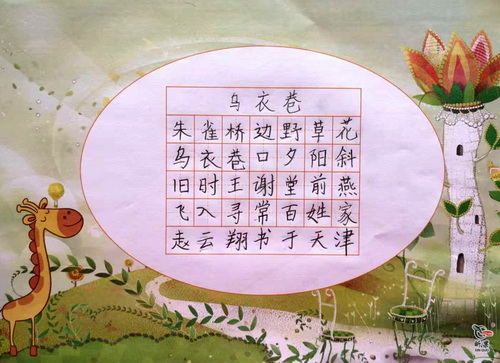 乌衣巷
朱雀桥边野草花
乌衣巷口夕阳斜
旧时王谢堂前燕
飞入寻常百姓家
赵云翔书于天津